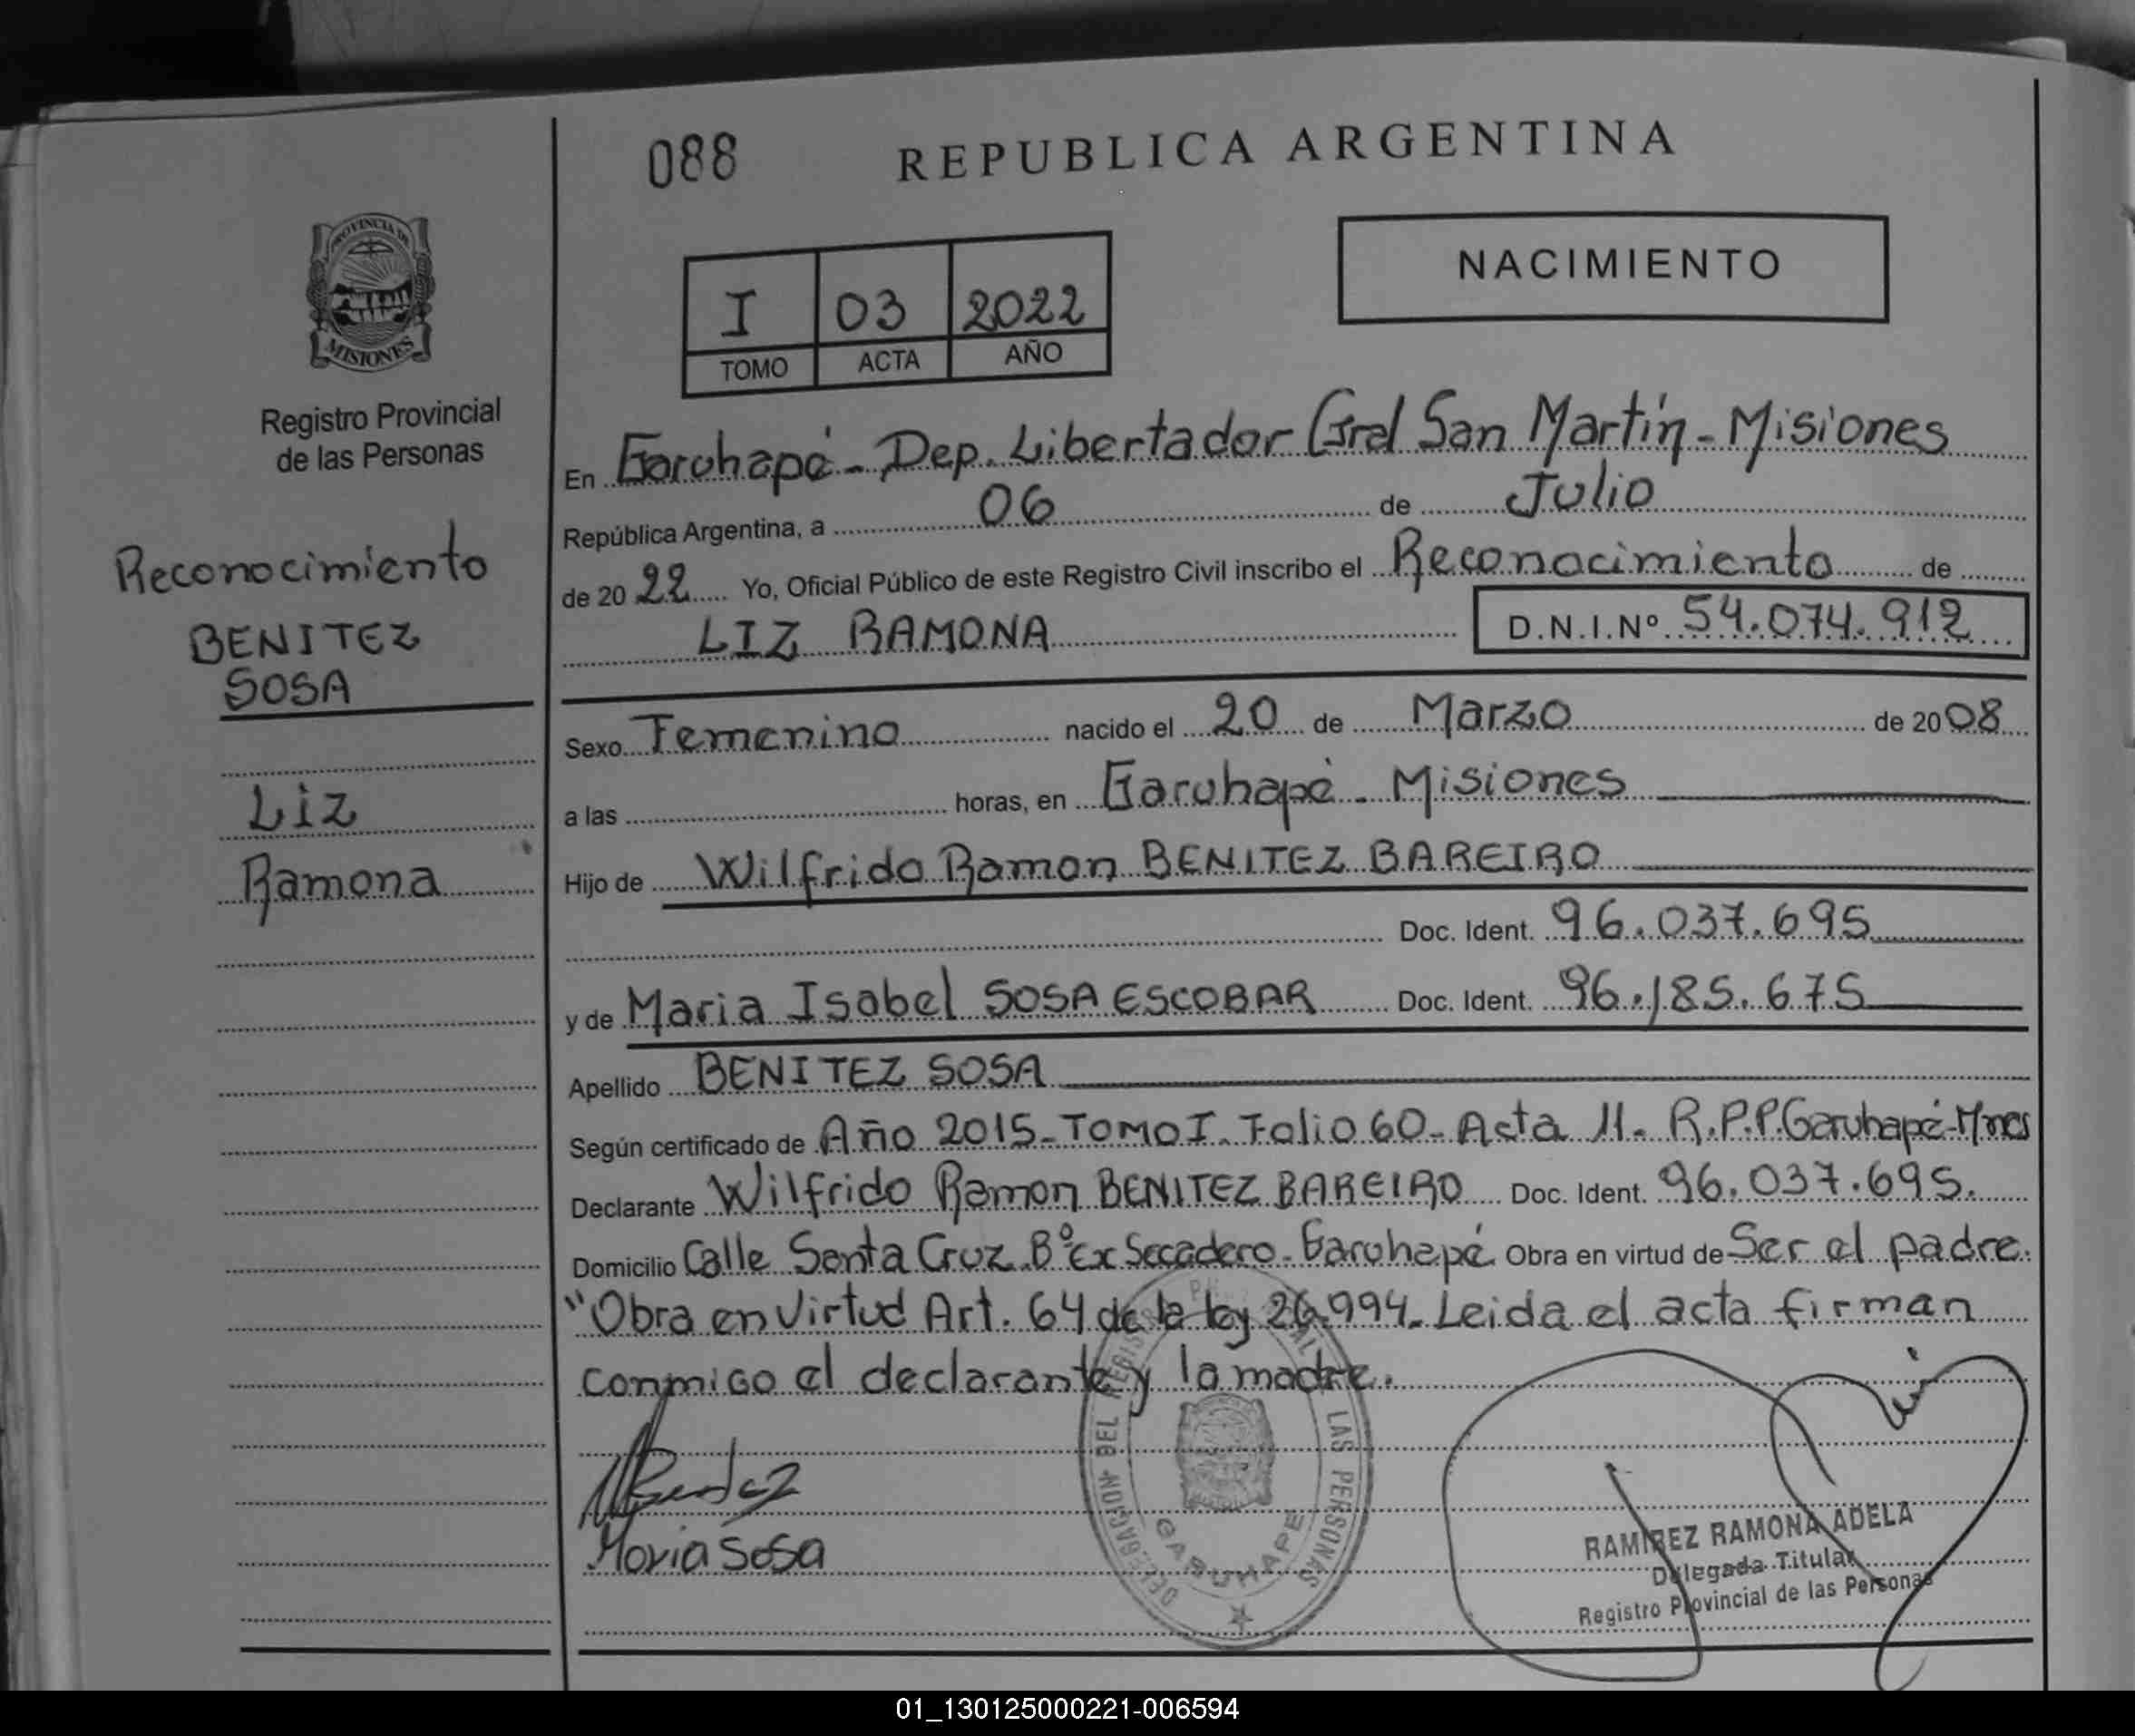 088
REPUBLICA ARGENTINA
PROVINCIA DE
MISIONES
Registro Provincial
de las Personas
I 03 2022
TOMO ACTA AÑO
NACIMIENTO
En Garuhapé - Dep. Libertador Gral San Martín - Misiones
República Argentina, a 06 de Julio
de 2022 Yo, Oficial Público de este Registro Civil inscribo el Reconocimiento de
LIZ RAMONA D.N.I.Nº 54.074.912
Reconocimiento
BENITEZ
SOSA
Liz
Ramona
Sexo Femenino nacido el 20 de Marzo de 2008
a las horas, en Garuhapé - Misiones
Hijo de Wilfrido Ramon BENITEZ BAREIRO
Doc. Ident. 96.037.695
y de Maria Isabel SOSA ESCOBAR Doc. Ident. 96.185.675
Apellido BENITEZ SOSA
Según certificado de Año 2015 - TOMO I. Folio 60 - Acta 11. R.P.P. Garuhapé - Mnes
Declarante Wilfrido Ramon BENITEZ BAREIRO Doc. Ident. 96.037.695.
Domicilio Calle Santa Cruz. Bº Ex Secadero - Garuhapé Obra en virtud de Ser el padre.
"Obra en Virtud Art. 64 de la ley 26.994. Leida el acta firman
conmigo el declarante y la madre.
Maria Sosa
DELEGACION DEL REGISTRO PROVINCIAL LAS PERSONAS
GARUHAPE
RAMIREZ RAMONA ADELA
Delegada Titular
Registro Provincial de las Personas
01_130125000221-006594